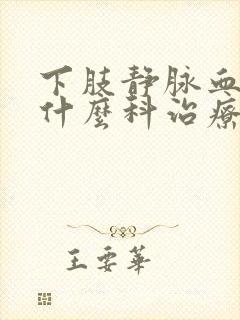 下肢静脉血
什麽科治療
王要華